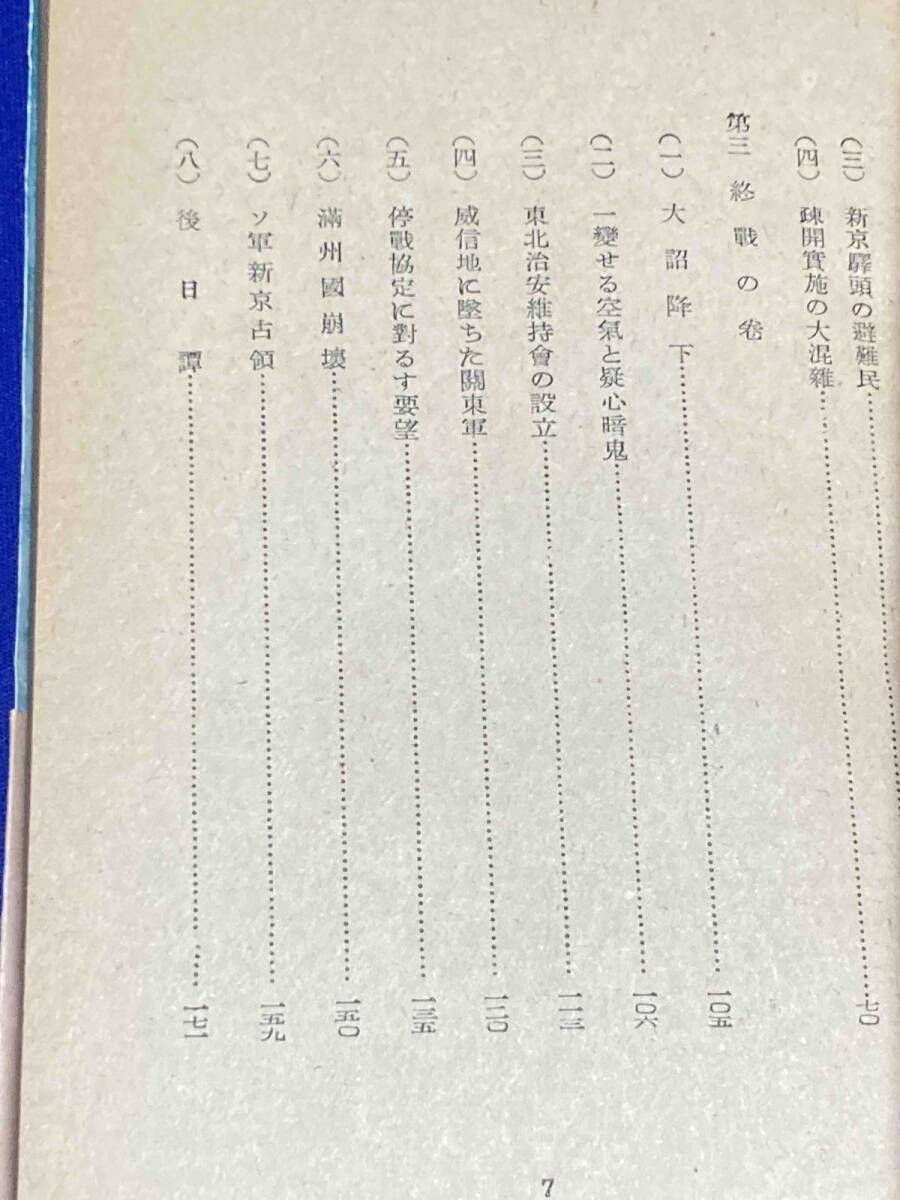 (三) 新京驛頭の避難民
(四) 疎開實施の大混雜……七〇
第三 終戰の卷
(一) 大詔降下……一〇五
(二) 一變せる空氣と疑心暗鬼……一〇六
(三) 東北治安維持會の設立……一一三
(四) 威信地に墜ちた關東軍……一二〇
(五) 停戰協定に對るす要望……一三五
(六) 滿州國崩壞……一五〇
(七) ソ軍新京占領……一五九
(八) 後日譚……一七一
7